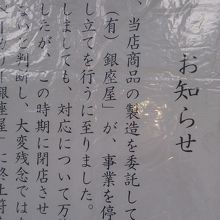 お知らせ
、当店商品の製造を委託して
（有）銀座屋」が、事業を停
し立てを行うに至りました。
しましても、対応について万
したが、この時期に閉店させ
ないと判断し、大変残念では
ベーカリー銀座屋」に終止符